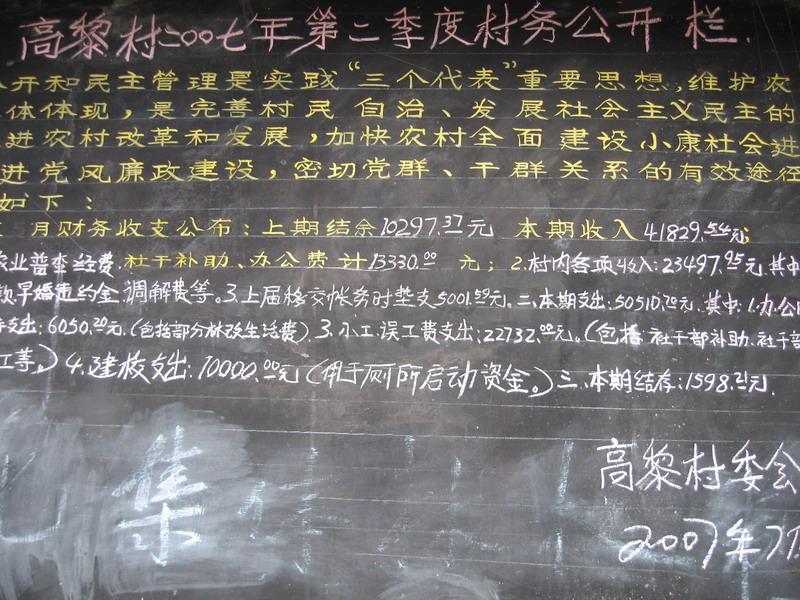 高黎村二00七年第二季度村务公开栏.
开和民主管理是实践“三个代表”重要思想,维护农
体体现，是完善村民自治、发展社会主义民主的
进农村改革和发展，加快农村全面建设小康社会进
进党风廉政建设，密切党群、干群关系的有效途径
如下：
月财务收支公布：上期结余10297.37元 本期收入41829.54元;
农业普查经费.社干补助、办公费计13330.00元；2.村内各项收入:23497.95元.其中
早婚违约金.调解费等。3.上届移交帐务时垫支5001.59元。二.本期支出:50510.70元.其中:1.办公
支出:6050.20元.(包括部分林改生活费).3.小工.误工费支出:22732.00元。(包括社干部补助.社干部
工等。)4.建校支出:10000.00元(用于厕所启动资金。)三.本期结存:1598.21元.
集
高黎村委会
2007年7